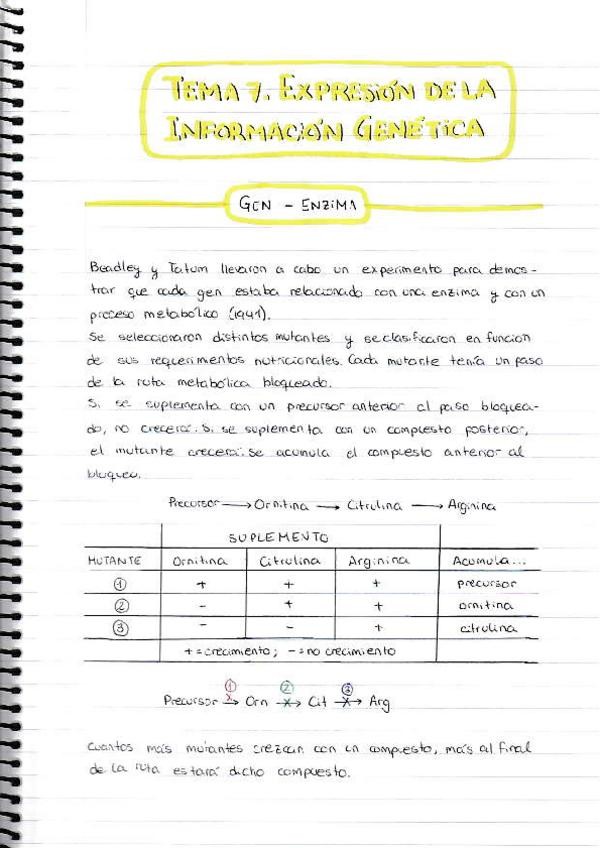 TEMA 7. EXPRESIÓN DE LA
INFORMACIÓN GENÉTICA
GEN - ENZIMA
Beadley y Tatum llevaron a cabo un experimento para demos-
trar que cada gen estaba relacionado con una enzima y con un
proceso metabólico (1941).
Se seleccionaron distintos mutantes y se clasificaron en función
de sus requerimientos nutricionales. Cada mutante tenía un paso
de la ruta metabólica bloqueado.
Si se suplementa con un precursor anterior al paso bloquea-
do, no crecerá. Si se suplementa con un compuesto posterior,
el mutante crecerá. Se acumula el compuesto anterior al
bloqueo.
Precursor → Ornitina → Citrulina → Arginina
SUPLEMENTO
MUTANTE Ornitina Citrulina Arginina Acumula...
① + + + precursor
② - + + ornitina
③ - - + citrulina
+ = crecimiento ; - = no crecimiento
① ② ③
Precursor -X→ Orn -X→ Cit -X→ Arg
Cuantos más mutantes crezcan con un compuesto, más al final
de la ruta estará dicho compuesto.